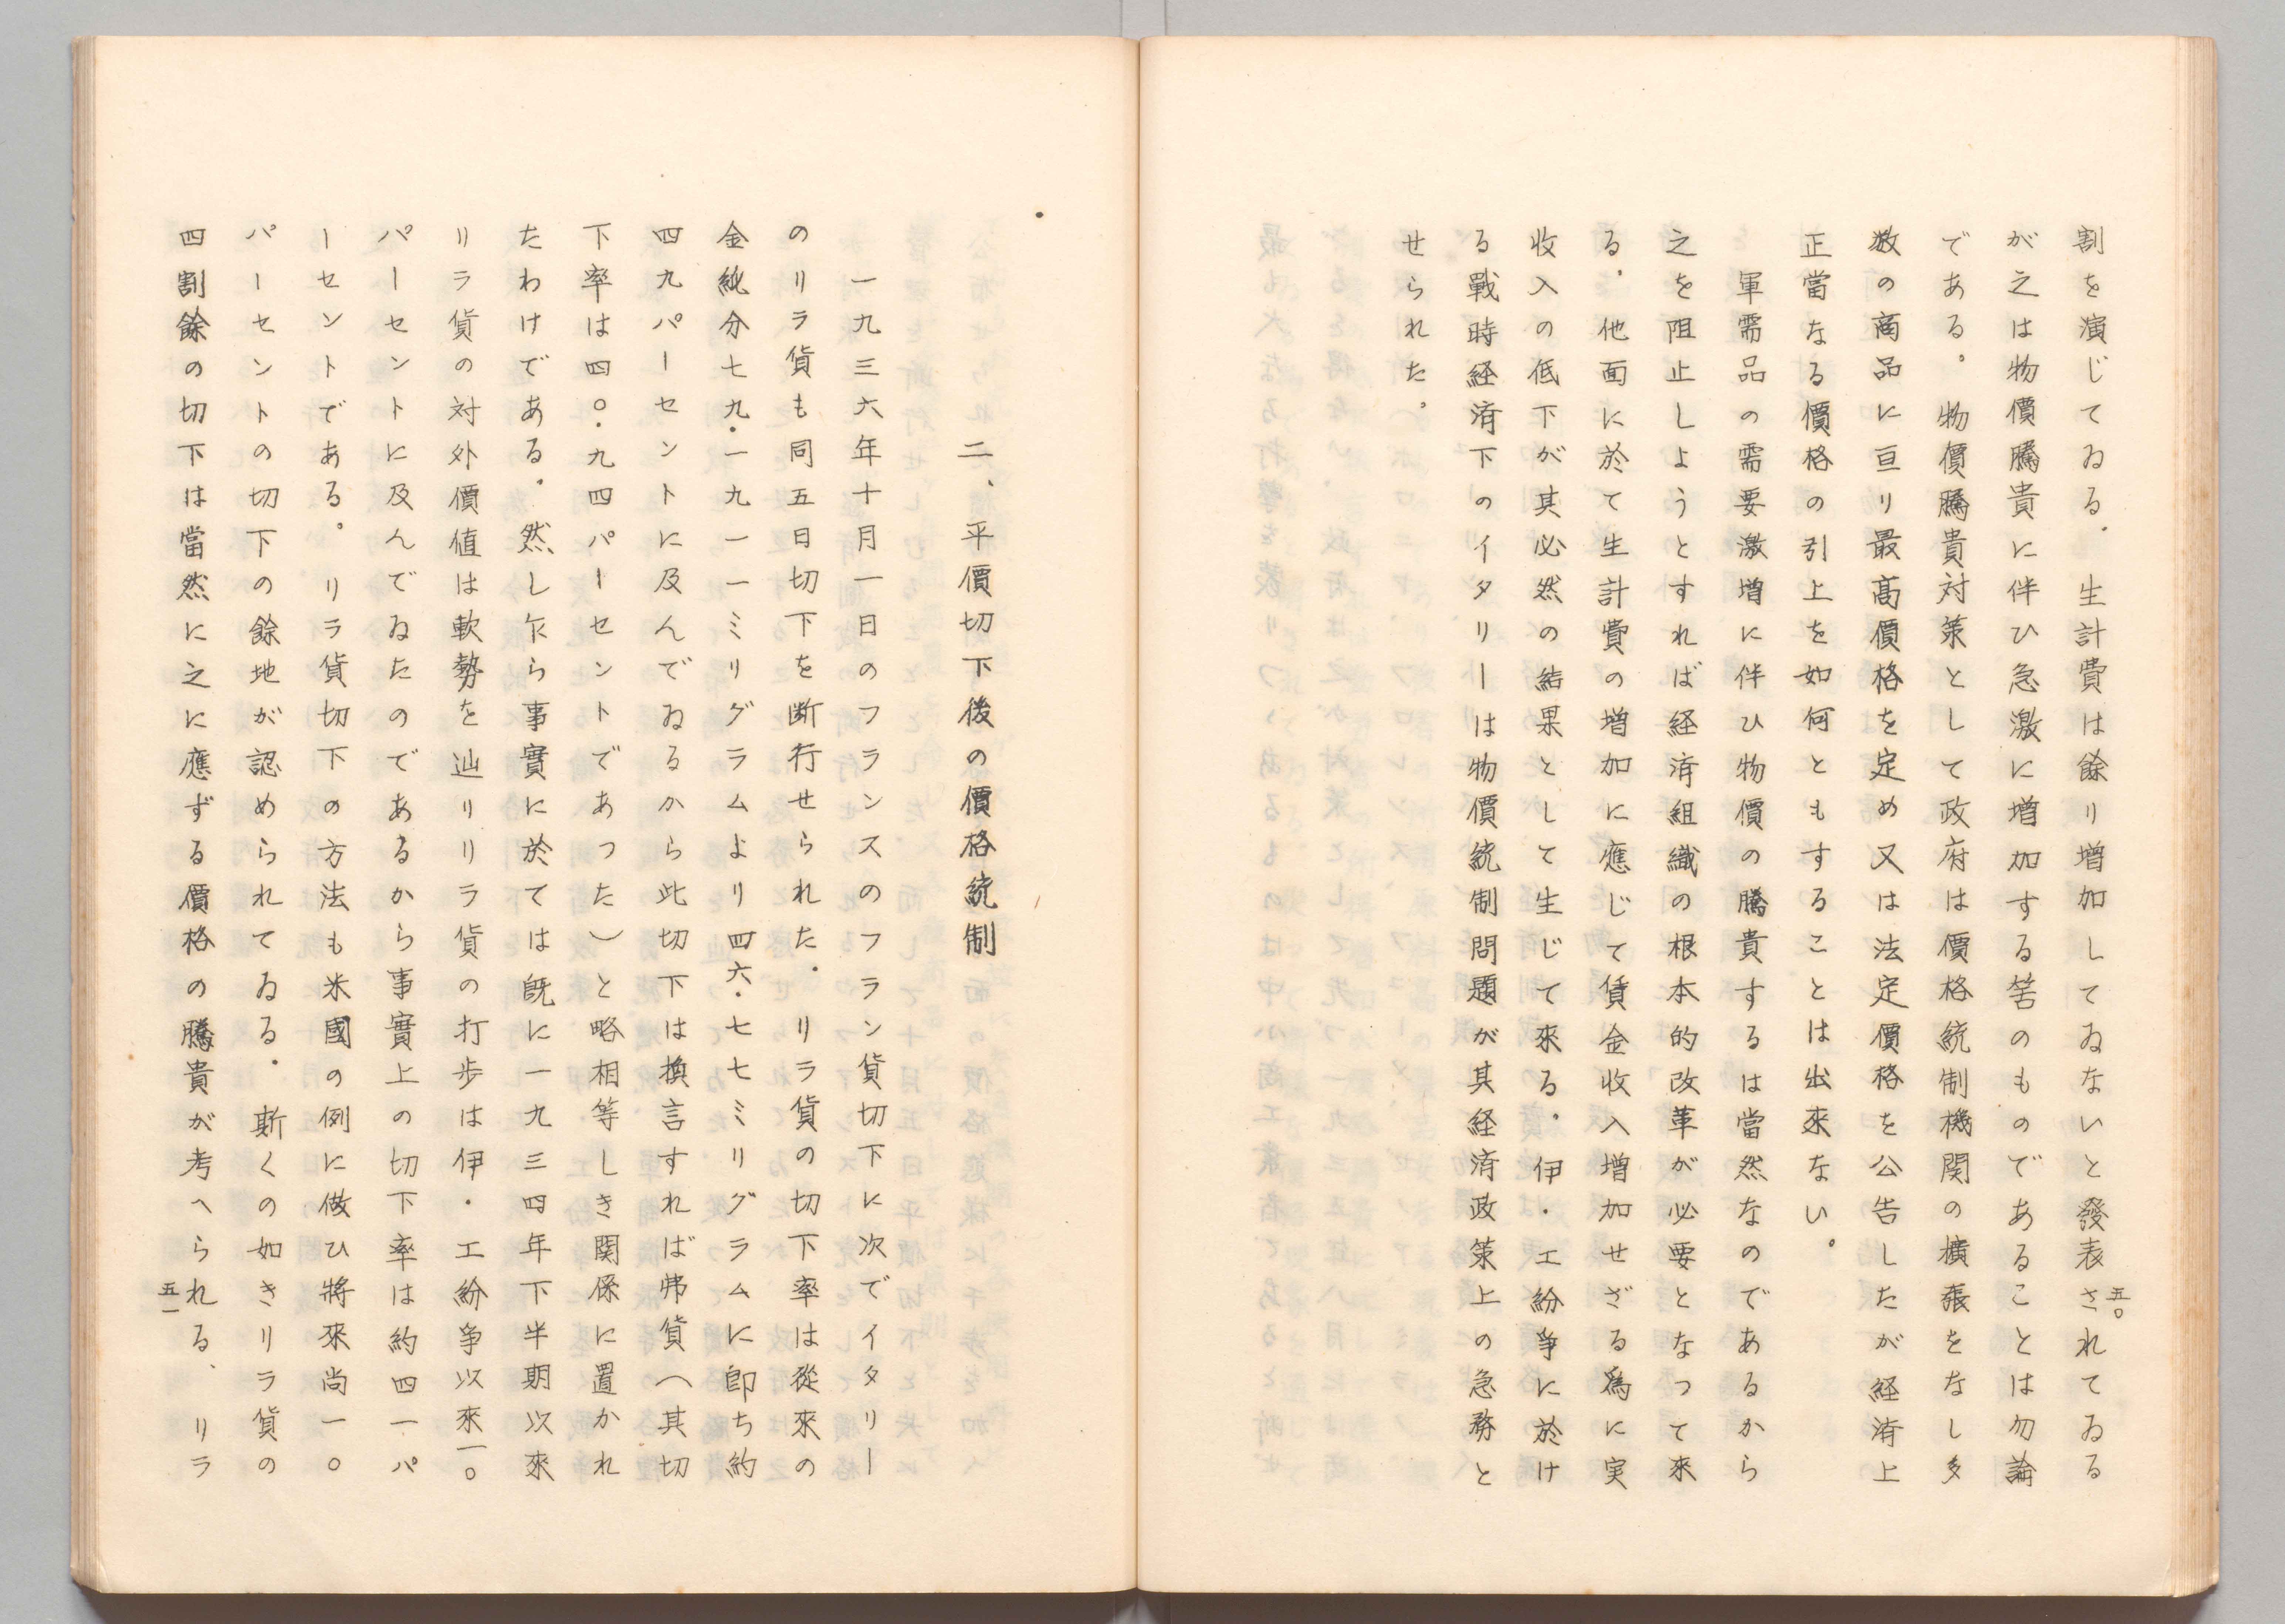 割を演じてゐる．生計費は餘り増加してゐないと發表されてゐる
が之は物價騰貴に伴ひ急激に増加する筈のものであることは勿論
である。物價騰貴対策として政府は價格統制機関の擴張をなし多
数の商品に亘り最髙價格を定め又は法定價格を公告したが経済上
正當なる價格の引上を如何ともすることは出來ない。
軍需品の需要激増に伴ひ物價の騰貴するは當然なのであるから
之を阻止しようとすれば経済組織の根本的改革が必要となって來
る．他面に於て生計費の増加に應じて賃金收入増加せざる爲に実
收入の低下が其必然の結果として生じて來る．伊・エ紛爭に於け
る戰時経済下のイタリーは物價統制問題が其経済政策上の急務と
せられた。
五〇
二、平價切下後の價格統制
一九三六年十月一日のフランスのフラン貨切下に次でイタリー
のリラ貨も同五日切下を断行せられた．リラ貨の切下率は從來の
金純分七九・一九一一ミリグラムより四六・七七ミリグラムに卽ち約
四九パーセントに及んでゐるから此切下は換言すれば弗貨（其切
下率は四〇・九四パーセントであつた）と略相等しき関係に置かれ
たわけである．然し乍ら事實に於ては既に一九三四年下半期以來
リラ貨の対外價値は軟勢を辿りリラ貨の打歩は伊・エ紛爭以來一〇
パーセントに及んでゐたのであるから事實上の切下率は約四一パ
ーセントである。リラ貨切下の方法も米國の例に倣ひ將來尚一〇
パーセントの切下の餘地が認められてゐる．斯くの如きリラ貨の
四割餘の切下は當然に之に應ずる價格の騰貴が考へられる、リラ
五一